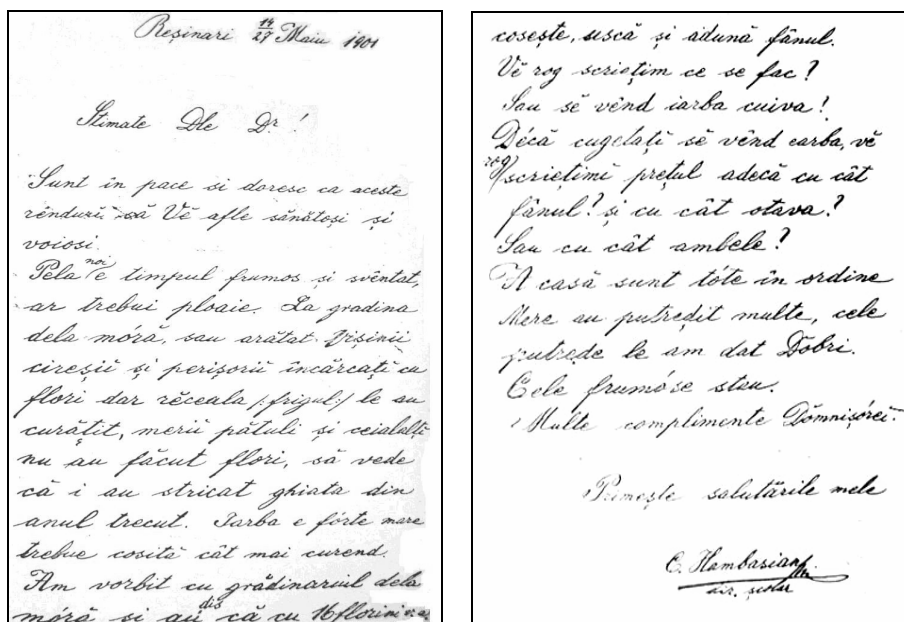 Reșinari 14/27 Maiu 1901
Stimate Dle Dr!
Sunt în pace si doresc ca aceste
rêndurĭ să Vĕ afle sănătoși și
voiosi.
Pela noi e timpul frumos si svêntat,
ar trebui ploaie. La gradina
dela móră, sau arătat. Vișinii
cireșii și perișorii încărcați cu
flori dar rĕceala /:frigul:/ le au
curățit, merii pătuli și ceialalți
nu au făcut flori, să vede
că i au stricat ghiata din
anul trecut. Iarba e fórte mare
trebue cosită cât mai curend.
Am vorbit cu grădinariul dela
móră si au dis că cu 16 florini v. a.
cosește, uscă și adună fânul.
Vĕ rog scriețim ce se fac?
Sau sĕ vênd iarba cuiva!
Décă cugelați sĕ vênd earba, vĕ
rog scriețimi prețul adecă cu cât
fânul? și cu cât otava?
Sau cu cât ambele?
A casă sunt tóte în ordine
Mere au putredit multe, cele
putrede le am dat Dobri.
Cele frumóse stau.
Multe complimente Domnișórei.
Primește salutările mele
C. Hambasian
dir. școlar